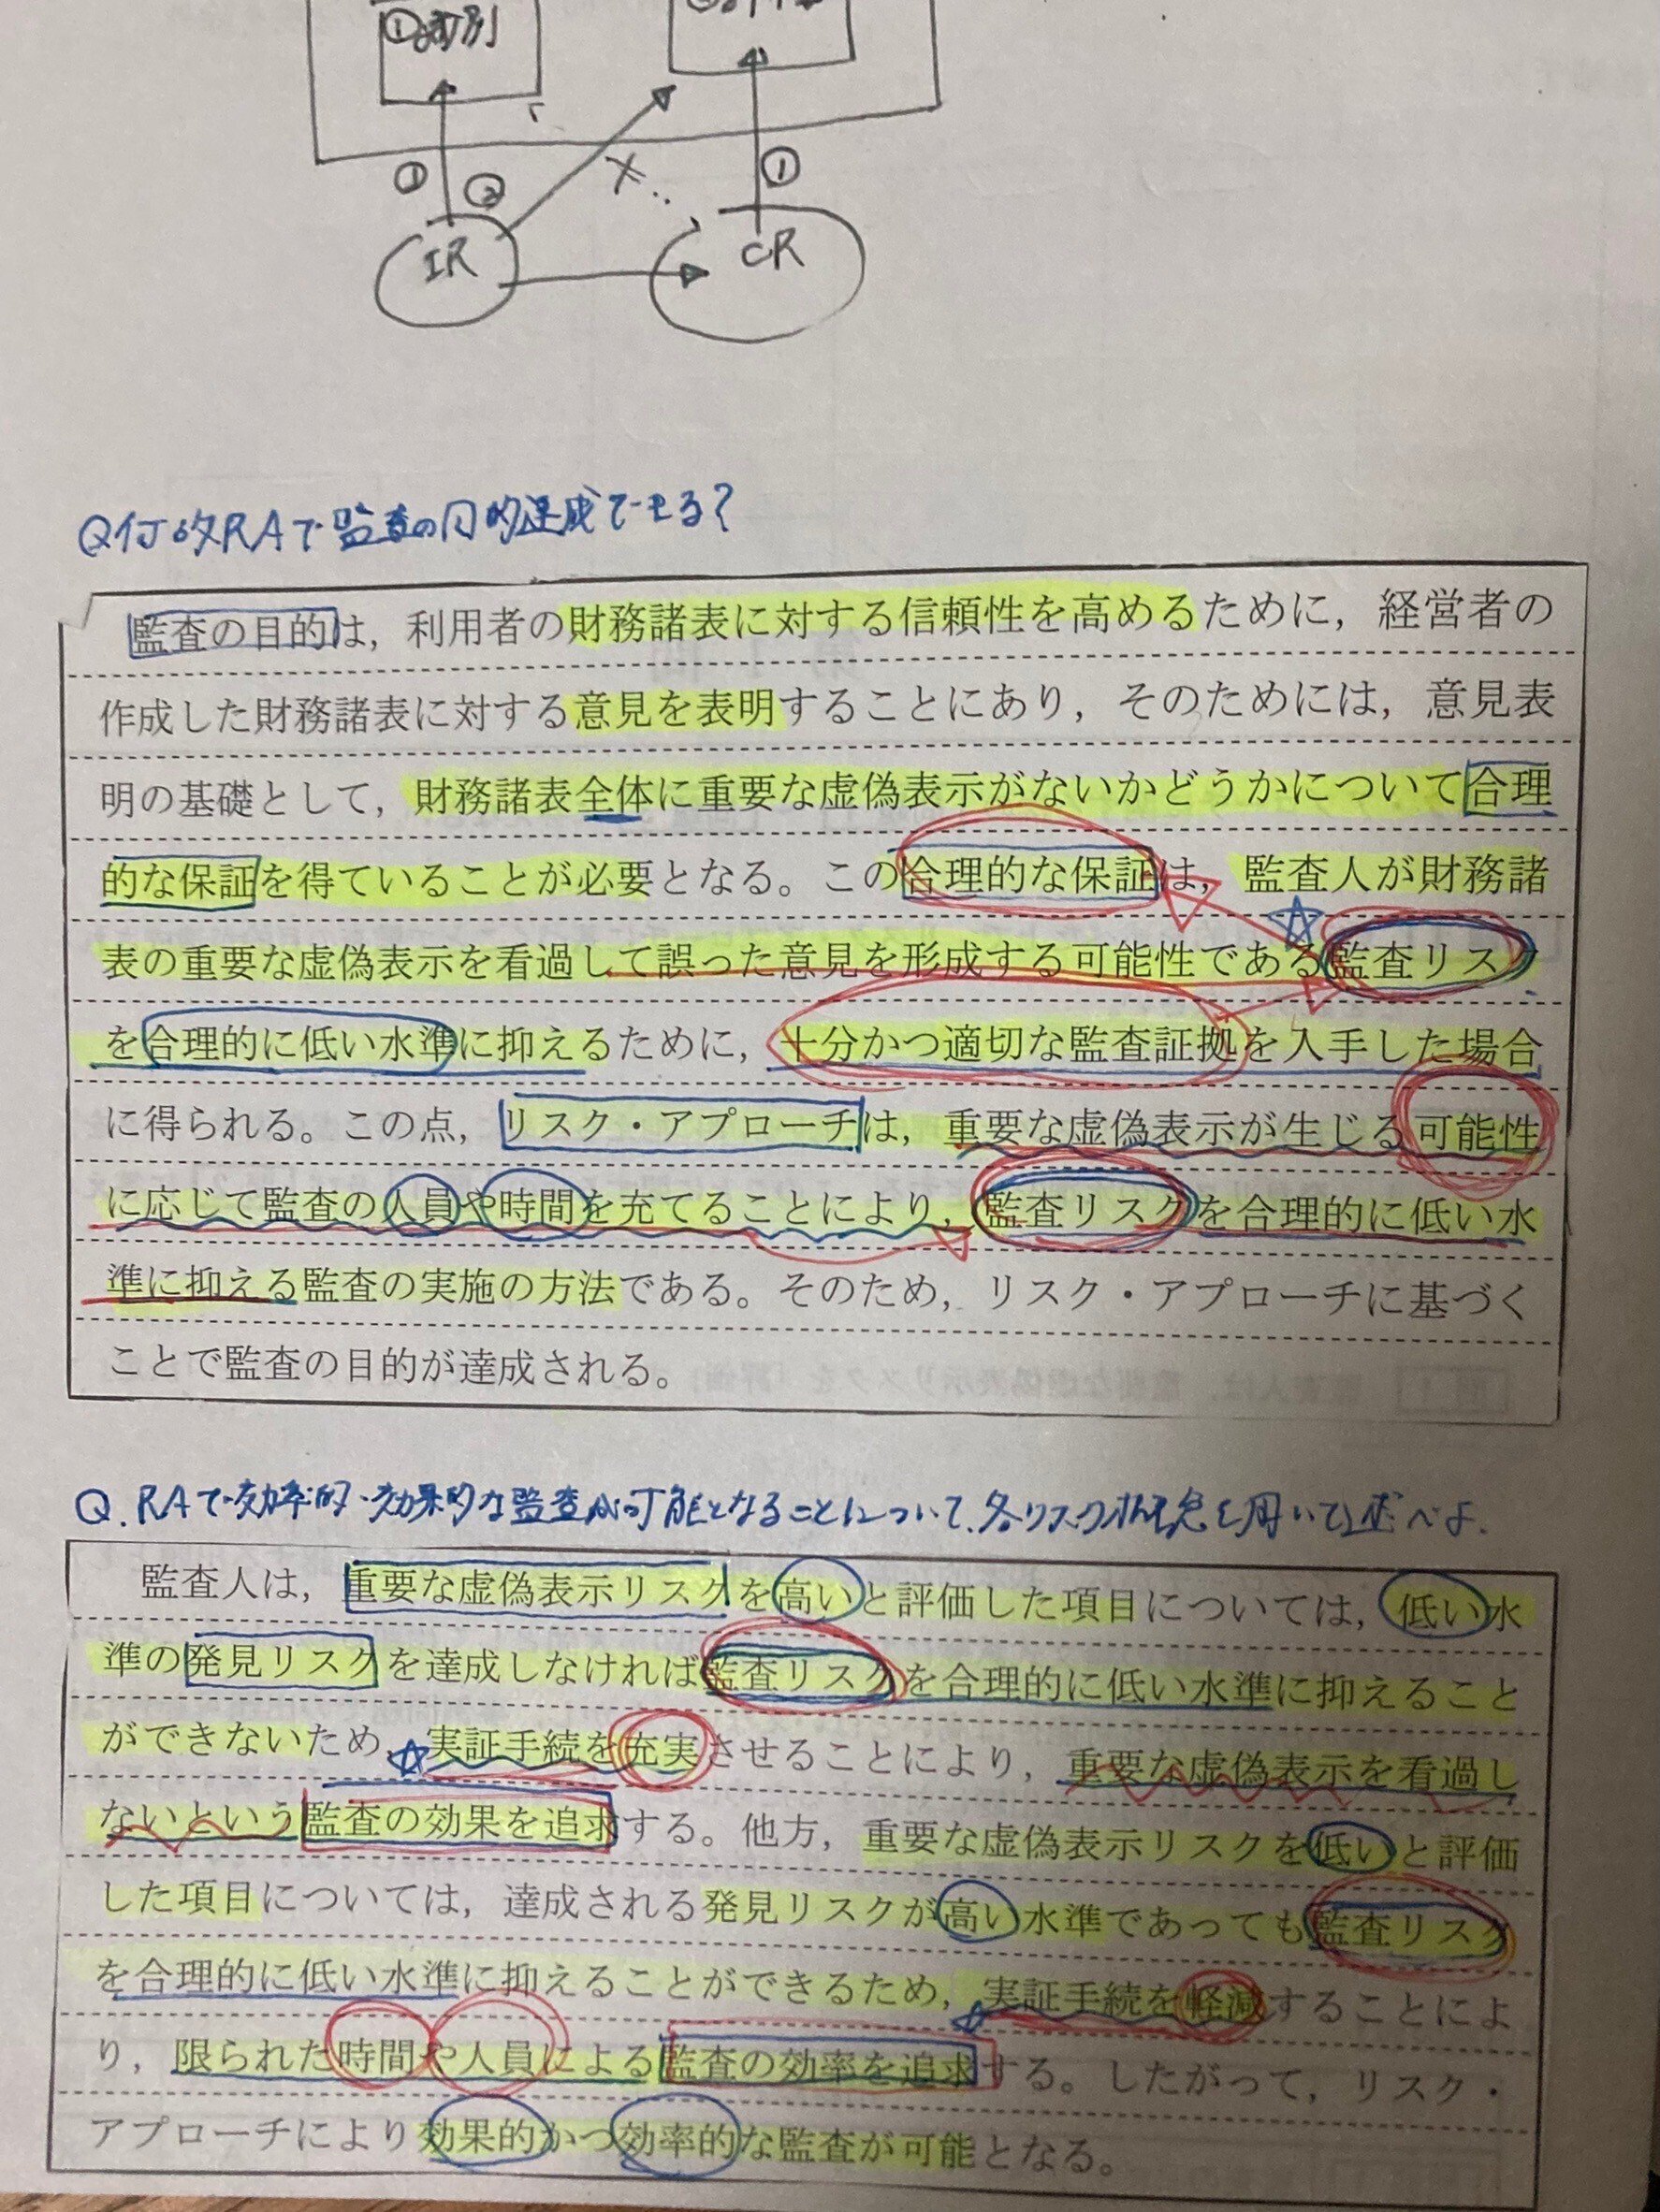 ①識別
①
②
×
①
IR
CR
Q何故RAで監査の目的達成できる?
監査の目的は，利用者の財務諸表に対する信頼性を高めるために，経営者の
作成した財務諸表に対する意見を表明することにあり，そのためには，意見表
明の基礎として，財務諸表全体に重要な虚偽表示がないかどうかについて合理
的な保証を得ていることが必要となる。この合理的な保証は，監査人が財務諸
表の重要な虚偽表示を看過して誤った意見を形成する可能性である監査リスク
を合理的に低い水準に抑えるために，十分かつ適切な監査証拠を入手した場合
に得られる。この点，リスク・アプローチは，重要な虚偽表示が生じる可能性
に応じて監査の人員や時間を充てることにより，監査リスクを合理的に低い水
準に抑える監査の実施の方法である。そのため，リスク・アプローチに基づく
ことで監査の目的が達成される。
Q.RAで効率的・効果的な監査が可能となることについて、各リスク概念を用いて述べよ.
監査人は，重要な虚偽表示リスクを高いと評価した項目については，低い水
準の発見リスクを達成しなければ監査リスクを合理的に低い水準に抑えること
ができないため，実証手続を充実させることにより，重要な虚偽表示を看過し
ないという監査の効果を追求する。他方，重要な虚偽表示リスクを低いと評価
した項目については，達成される発見リスクが高い水準であっても監査リスク
を合理的に低い水準に抑えることができるため，実証手続を軽減することによ
り，限られた時間や人員による監査の効率を追求する。したがって，リスク・
アプローチにより効果的かつ効率的な監査が可能となる。